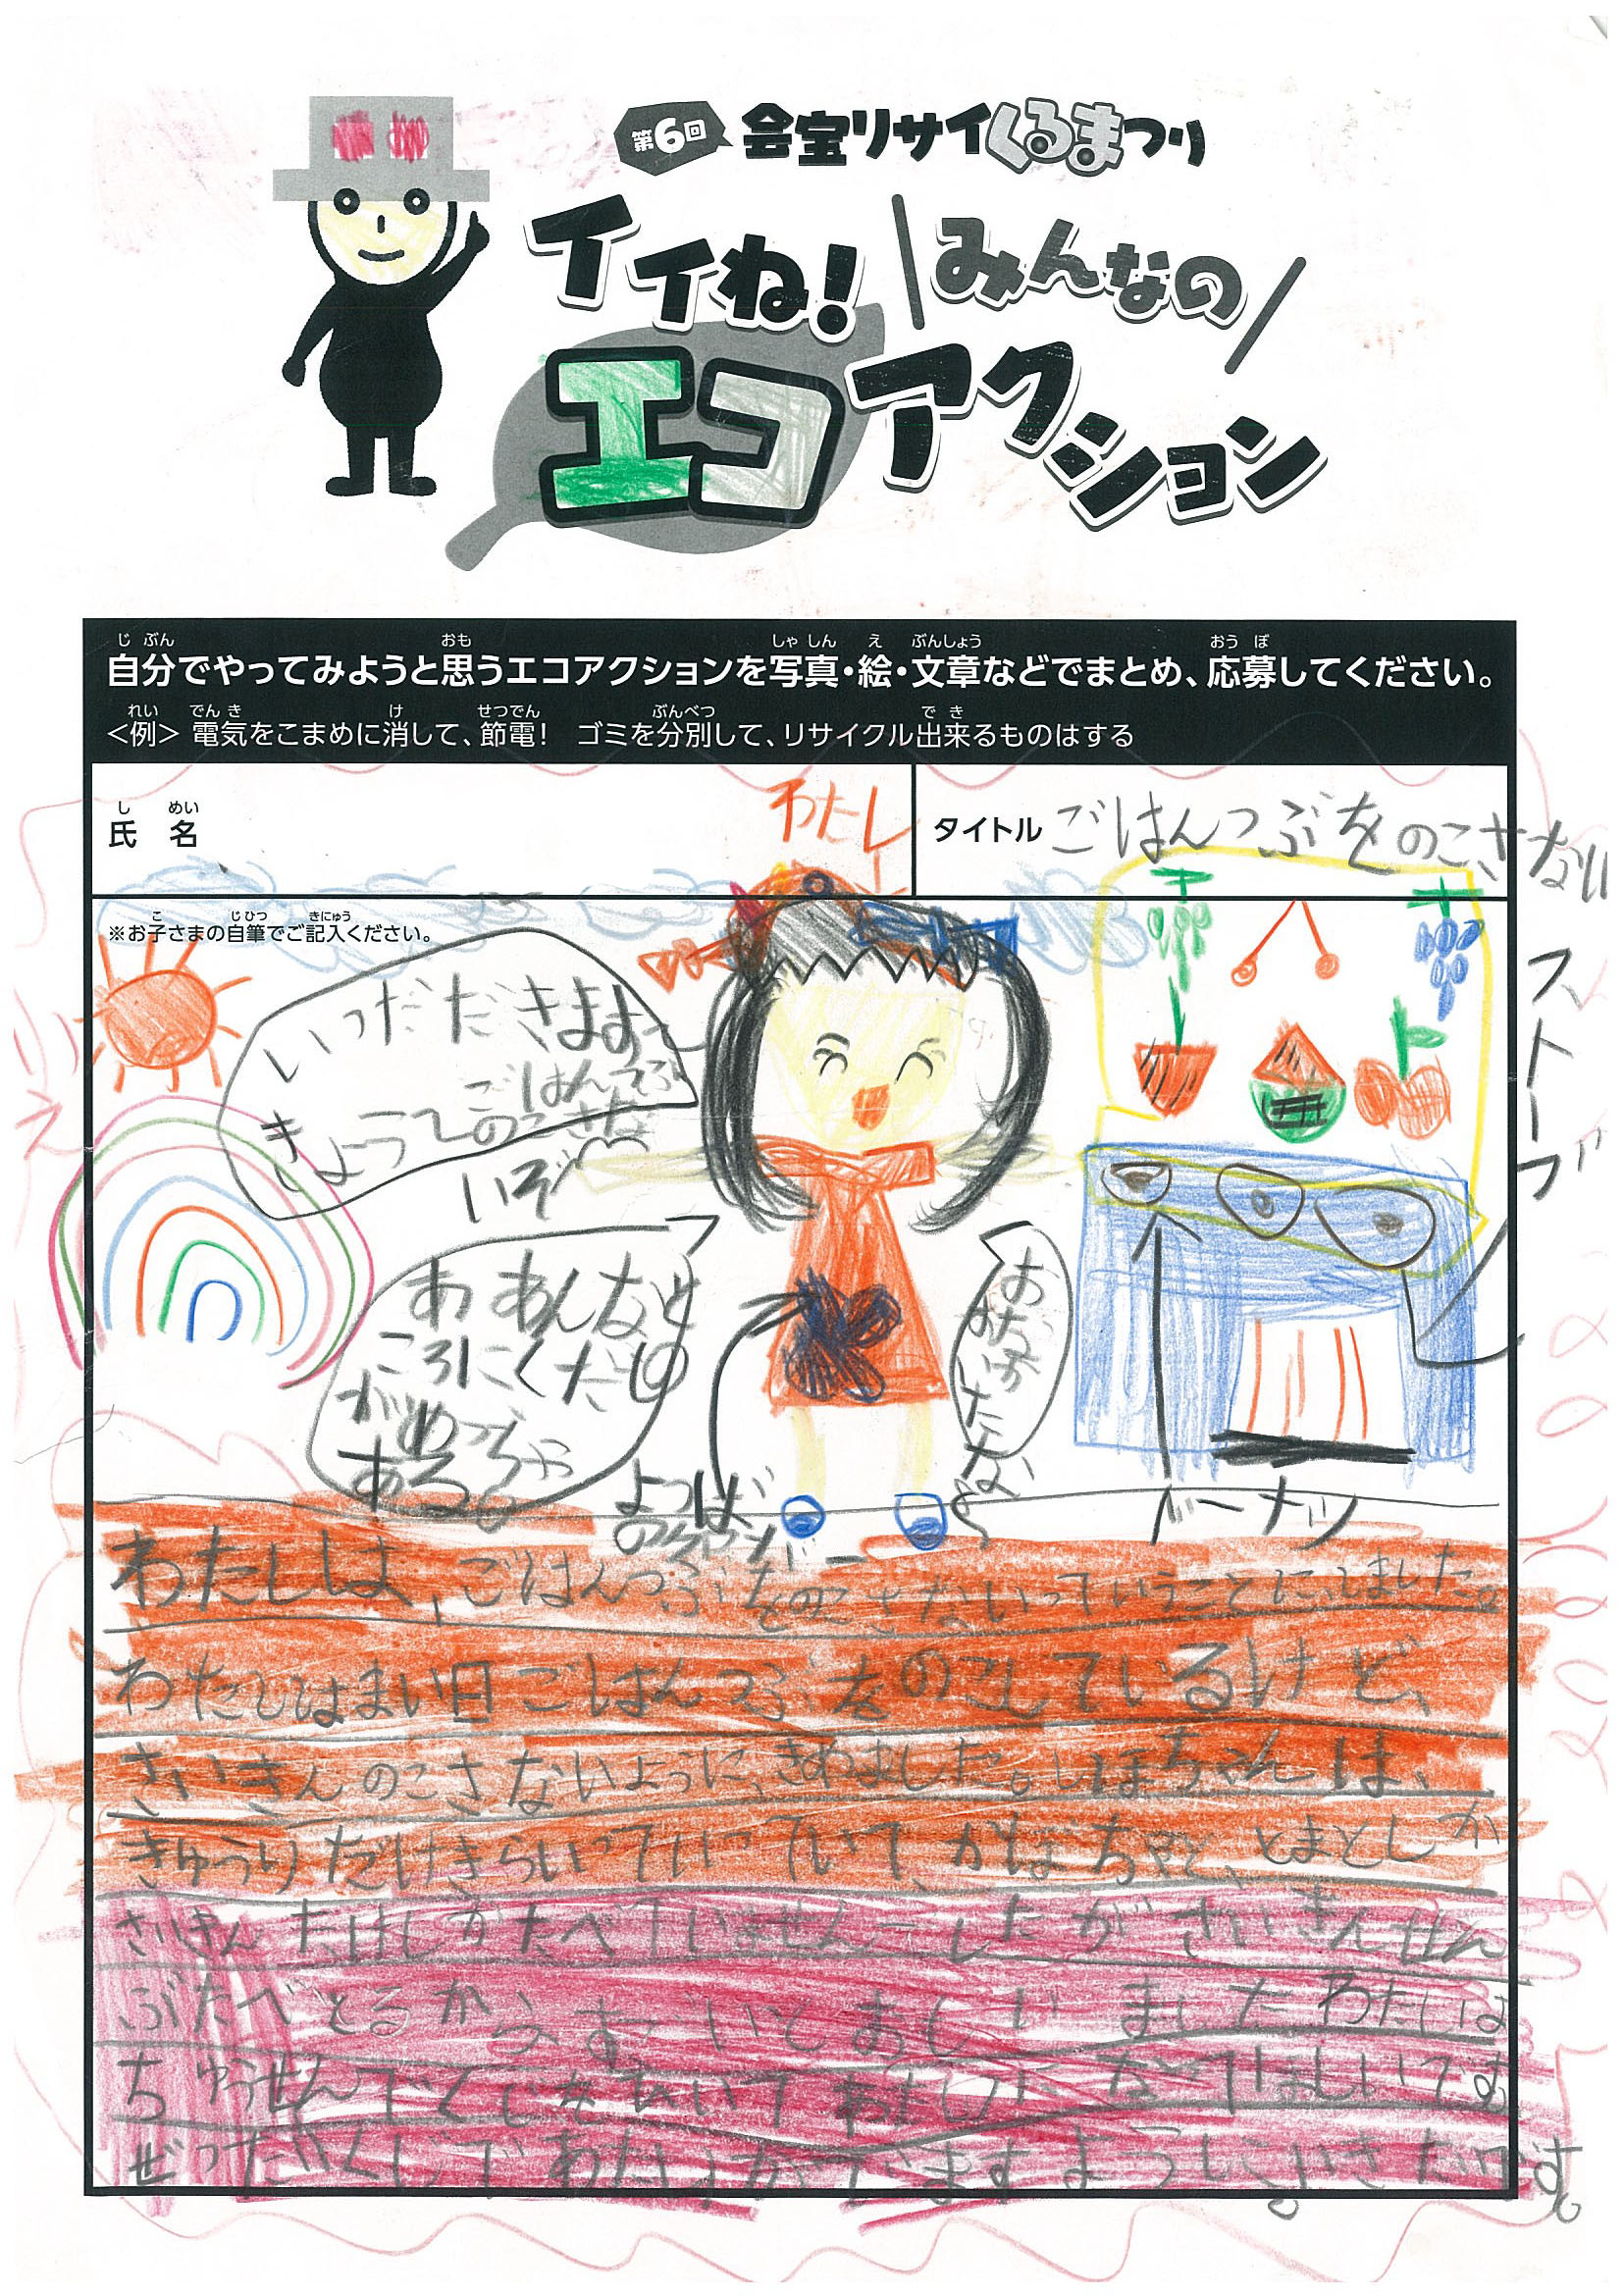 第6回 会宝リサイくるまつり
イイね! \みんなの/
エコアクション
自分でやってみようと思うエコアクションを写真・絵・文章などでまとめ、応募してください。
じぶん おも しゃしん え ぶんしょう おうぼ
<例> 電気をこまめに消して、節電! ゴミを分別して、リサイクル出来るものはする
れい でんき け せつでん ぶんべつ でき
氏名
しめい
わたし
タイトル ごはんつぶをのこさない
※お子さまの自筆でご記入ください。
こ じひつ きにゅう
いっただきまよ
きょうてのごはんつぶ
のこさな
いぞ
あ あんなと
ころにくだもの
がめっちゃ
ある
おなか
いたな
よつばの
ストーブ
ドーナツ
わたしは、ごはんつぶをのこさないっていうことに、しました。
わたしはまい日ごはんつぶをのこしているけど、
さいきんのこさないように、きめました。しほちゃんは、
きゅうりだけきらいっていっていて、かぼちゃと、とまとしか
さいきん たけしかたべていませんでしたがさいきんぜん
ぶたべとるからすごいとおもいました わたしは
ちゅうせんでくじをひいてわたしになてほしいです
ぜったいくじでわたしがでますようにいきたいです。